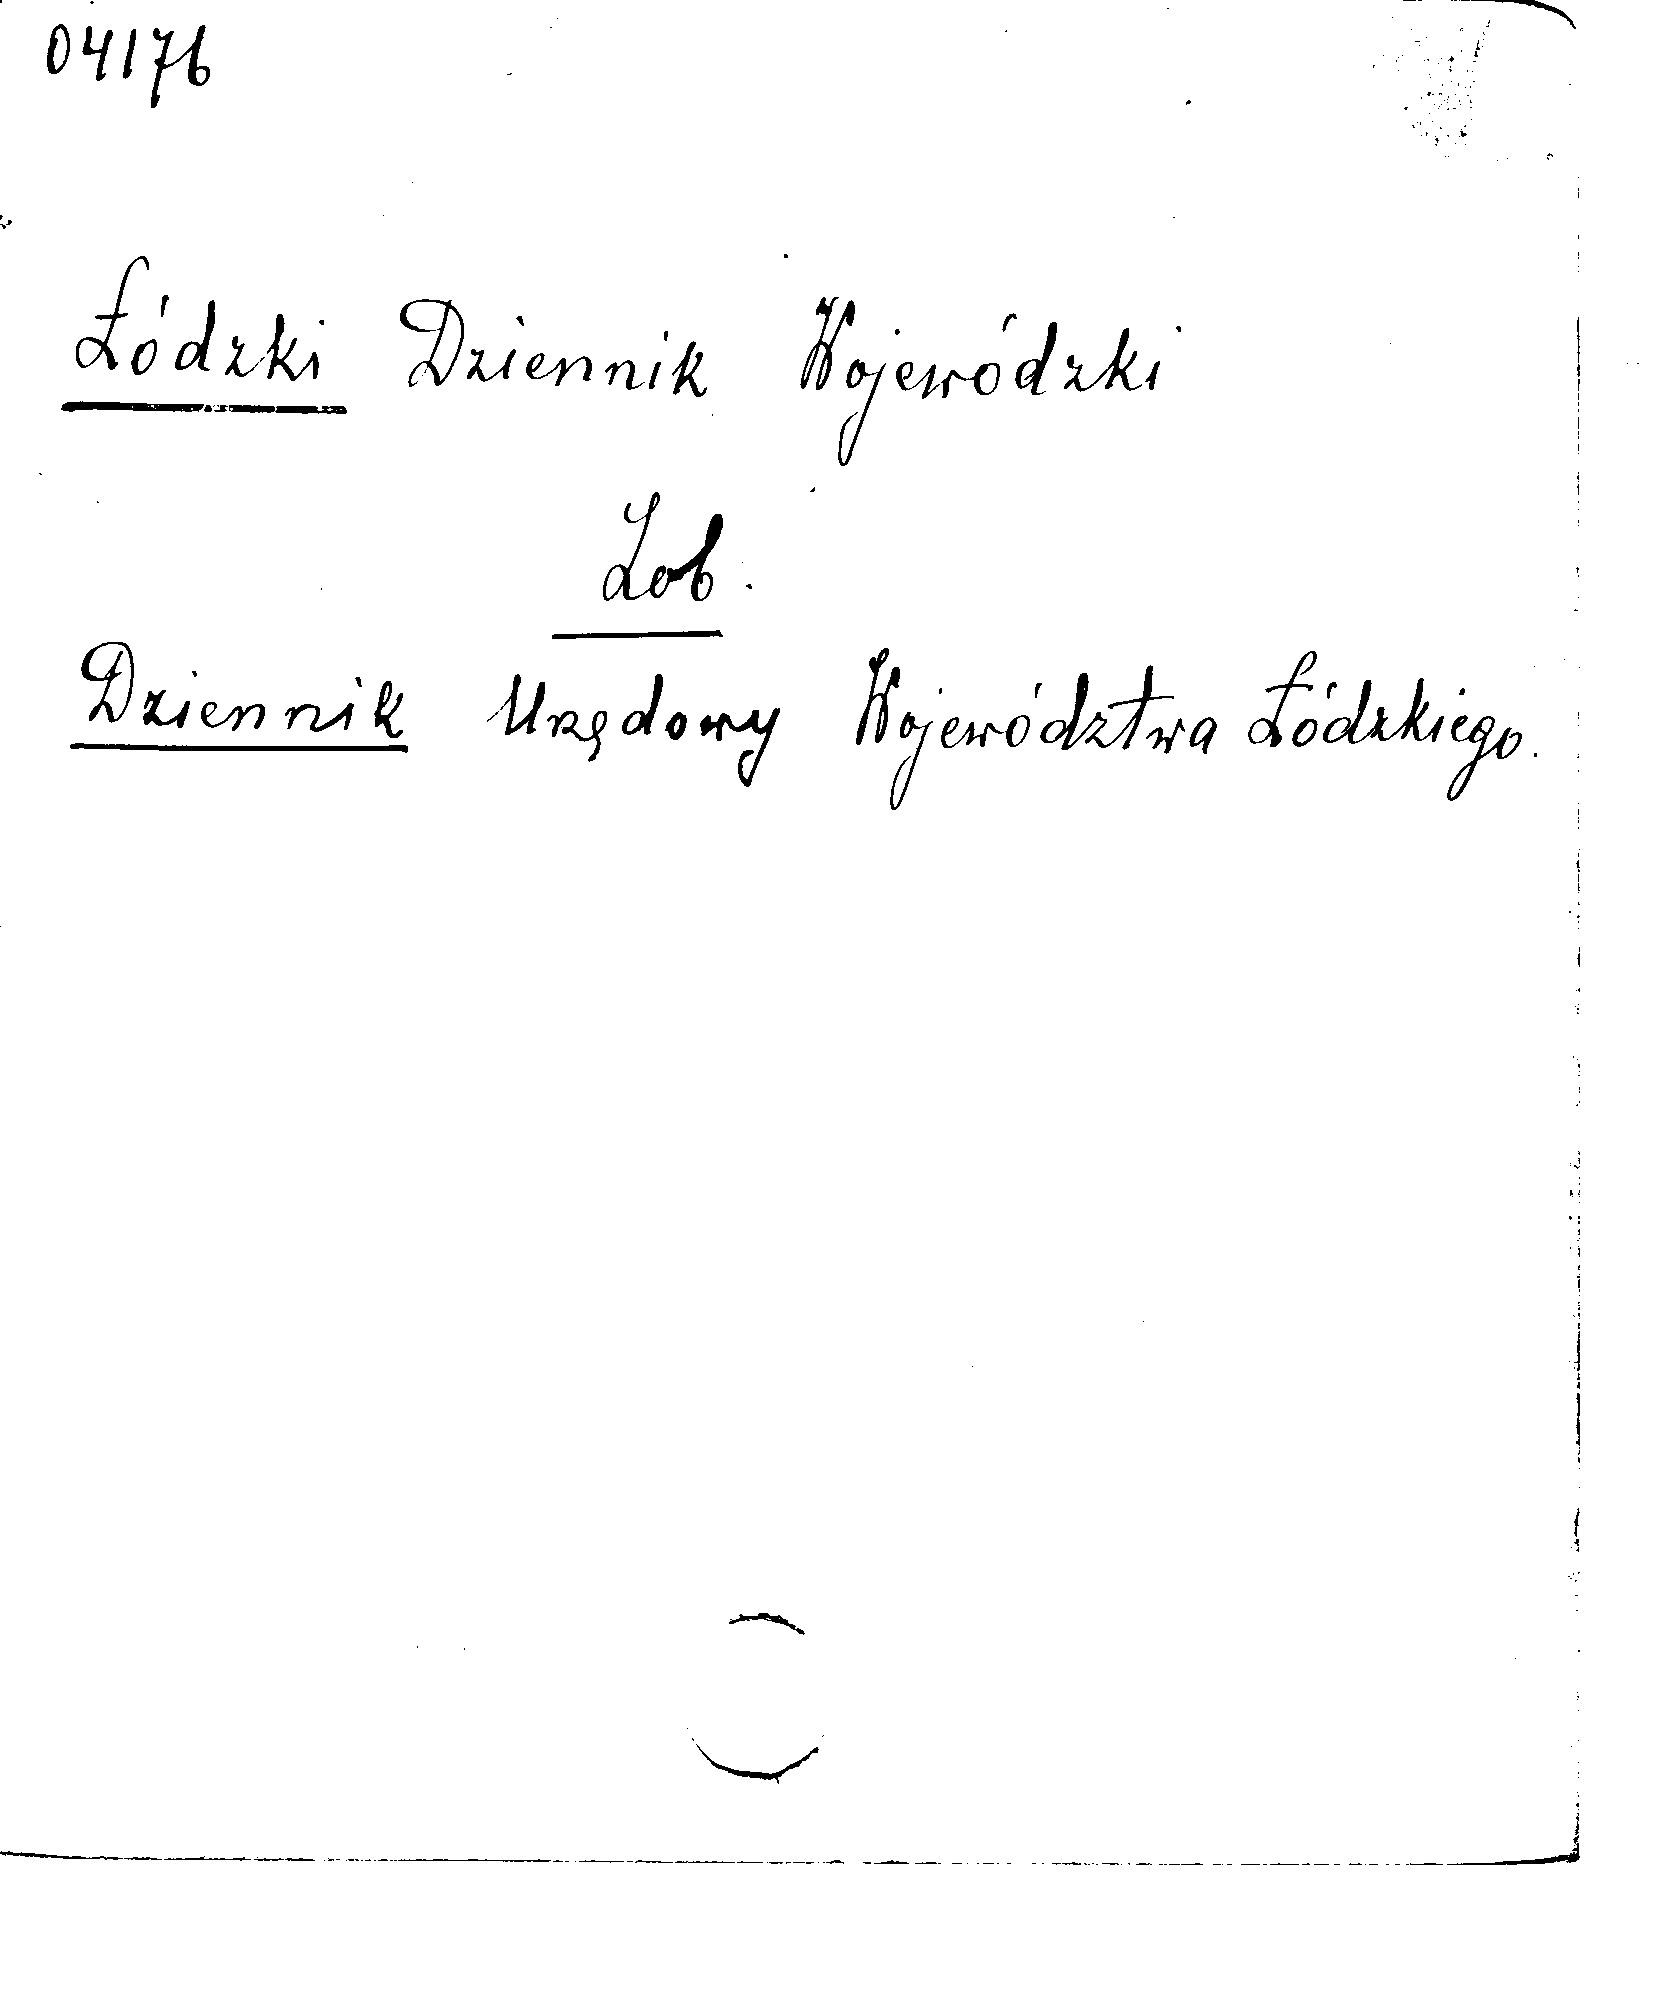 04176
Łódzki Dziennik Wojewódzki
Zob.
Dziennik Urzędowy Województwa Łódzkiego.